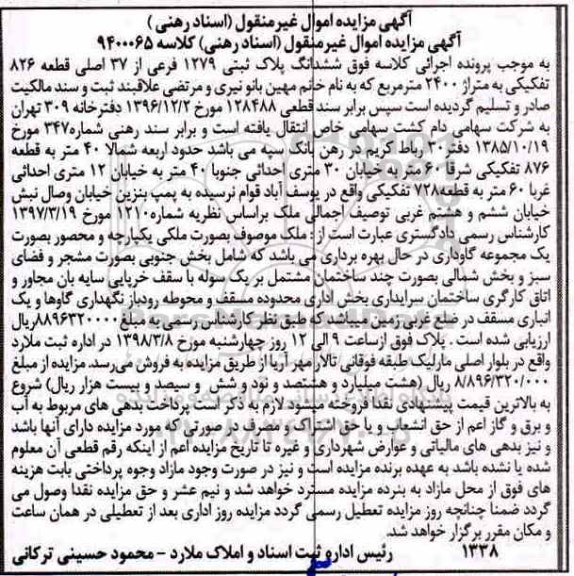 آگهی مزایده اموال غیرمنقول (اسناد رهنی)
آگهی مزایده اموال غیرمنقول (اسناد رهنی) کلاسه ۹۴۰۰۰۶۵
به موجب پرونده اجرائی کلاسه فوق ششدانگ پلاک ثبتی ۱۲۷۹ فرعی از ۳۷ اصلی قطعه ۸۲۶
تفکیکی به متراژ ۲۴۰۰ مترمربع که به نام خانم مهین بانو نیری و مرتضی علاقبند ثبت و سند مالکیت
صادر و تسلیم گردیده است سپس برابر سند قطعی ۱۲۸۴۸۸ مورخ ۱۳۹۶/۱۲/۲ دفترخانه ۳۰۹ تهران
به شرکت سهامی دام کشت سهامی خاص انتقال یافته است و برابر سند رهنی شماره ۳۴۷ مورخ
۱۳۸۵/۱۰/۱۹ دفتر ۳۰ رباط کریم در رهن بانک سپه می باشد حدود اربعه شمالا ۴۰ متر به قطعه
۸۷۶ تفکیکی شرقا ۶۰ متر به خیابان ۳۰ متری احداثی جنوبا ۴۰ متر به خیابان ۱۲ متری احداثی
غربا ۶۰ متر به قطعه ۷۲۸ تفکیکی واقع در یوسف آباد قوام نرسیده به پمپ بنزین خیابان وصال نبش
خیابان ششم و هشتم غربی توصیف اجمالی ملک براساس نظریه شماره ۱۲۱۰ مورخ ۱۳۹۷/۳/۱۹
کارشناس رسمی دادگستری عبارت است از : ملک موصوف بصورت ملکی یکپارچه و محصور بصورت
یک مجموعه گاوداری در حال بهره برداری می باشد که شامل بخش جنوبی بصورت مشجر و فضای
سبز و بخش شمالی بصورت چند ساختمان مشتمل بر یک سوله با سقف خرپایی سایه بان مجاور و
اتاق کارگری ساختمان سرایداری بخش اداری محدوده مسقف و محوطه روباز نگهداری گاوها و یک
انباری مسقف در ضلع غربی زمین میباشد که طبق نظر کارشناس رسمی به مبلغ ۸۸۹۶۳۲۰۰۰۰ ریال
ارزیابی شده است . پلاک فوق از ساعت ۹ الی ۱۲ روز چهارشنبه مورخ ۱۳۹۸/۳/۸ در اداره ثبت ملارد
واقع در بلوار اصلی مارلیک طبقه فوقانی تالار مهر آریا از طریق مزایده به فروش می رسد. مزایده از مبلغ
۸/۸۹۶/۳۲۰/۰۰۰ ریال (هشت میلیارد و هشتصد و نود و شش و سیصد و بیست هزار ریال) شروع
به بالاترین قیمت پیشنهادی نقدا فروخته میشود لازم به ذکر است پرداخت بدهی های مربوط به آب
و برق و گاز اعم از حق انشعاب و یا حق اشتراک و مصرف در صورتی که مورد مزایده دارای آنها باشد
و نیز بدهی های مالیاتی و عوارض شهرداری و غیره تا تاریخ مزایده اعم از اینکه رقم قطعی آن معلوم
شده یا نشده باشد به عهده برنده مزایده است و نیز در صورت وجود مازاد وجوه پرداختی بابت هزینه
های فوق از محل مازاد به برنده مزایده مسترد خواهد شد و نیم عشر و حق مزایده نقدا وصول می
گردد ضمنا چنانچه روز مزایده تعطیل رسمی گردد مزایده روز اداری بعد از تعطیلی در همان ساعت
و مکان مقرر برگزار خواهد شد.
۱۳۳۸ رئیس اداره ثبت اسناد و املاک ملارد – محمود حسینی ترکانی